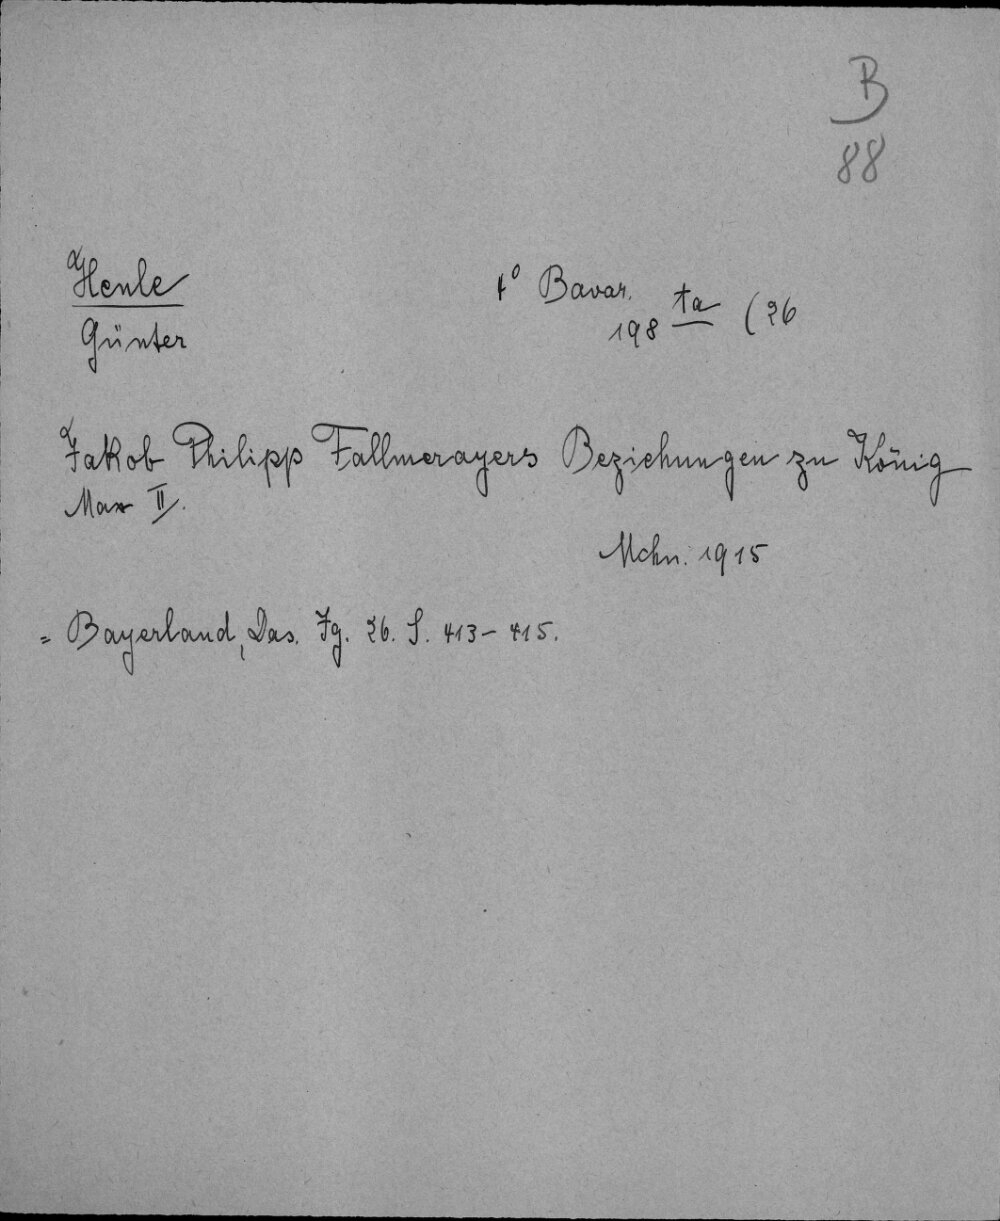 B
88
Henle
Günter
4° Bavar.
198 ta (26
Jakob Philipp Fallmerayers Beziehungen zu König
Max II.
Mchn. 1915
= Bayerland, Das. Jg. 26. S. 413-415.